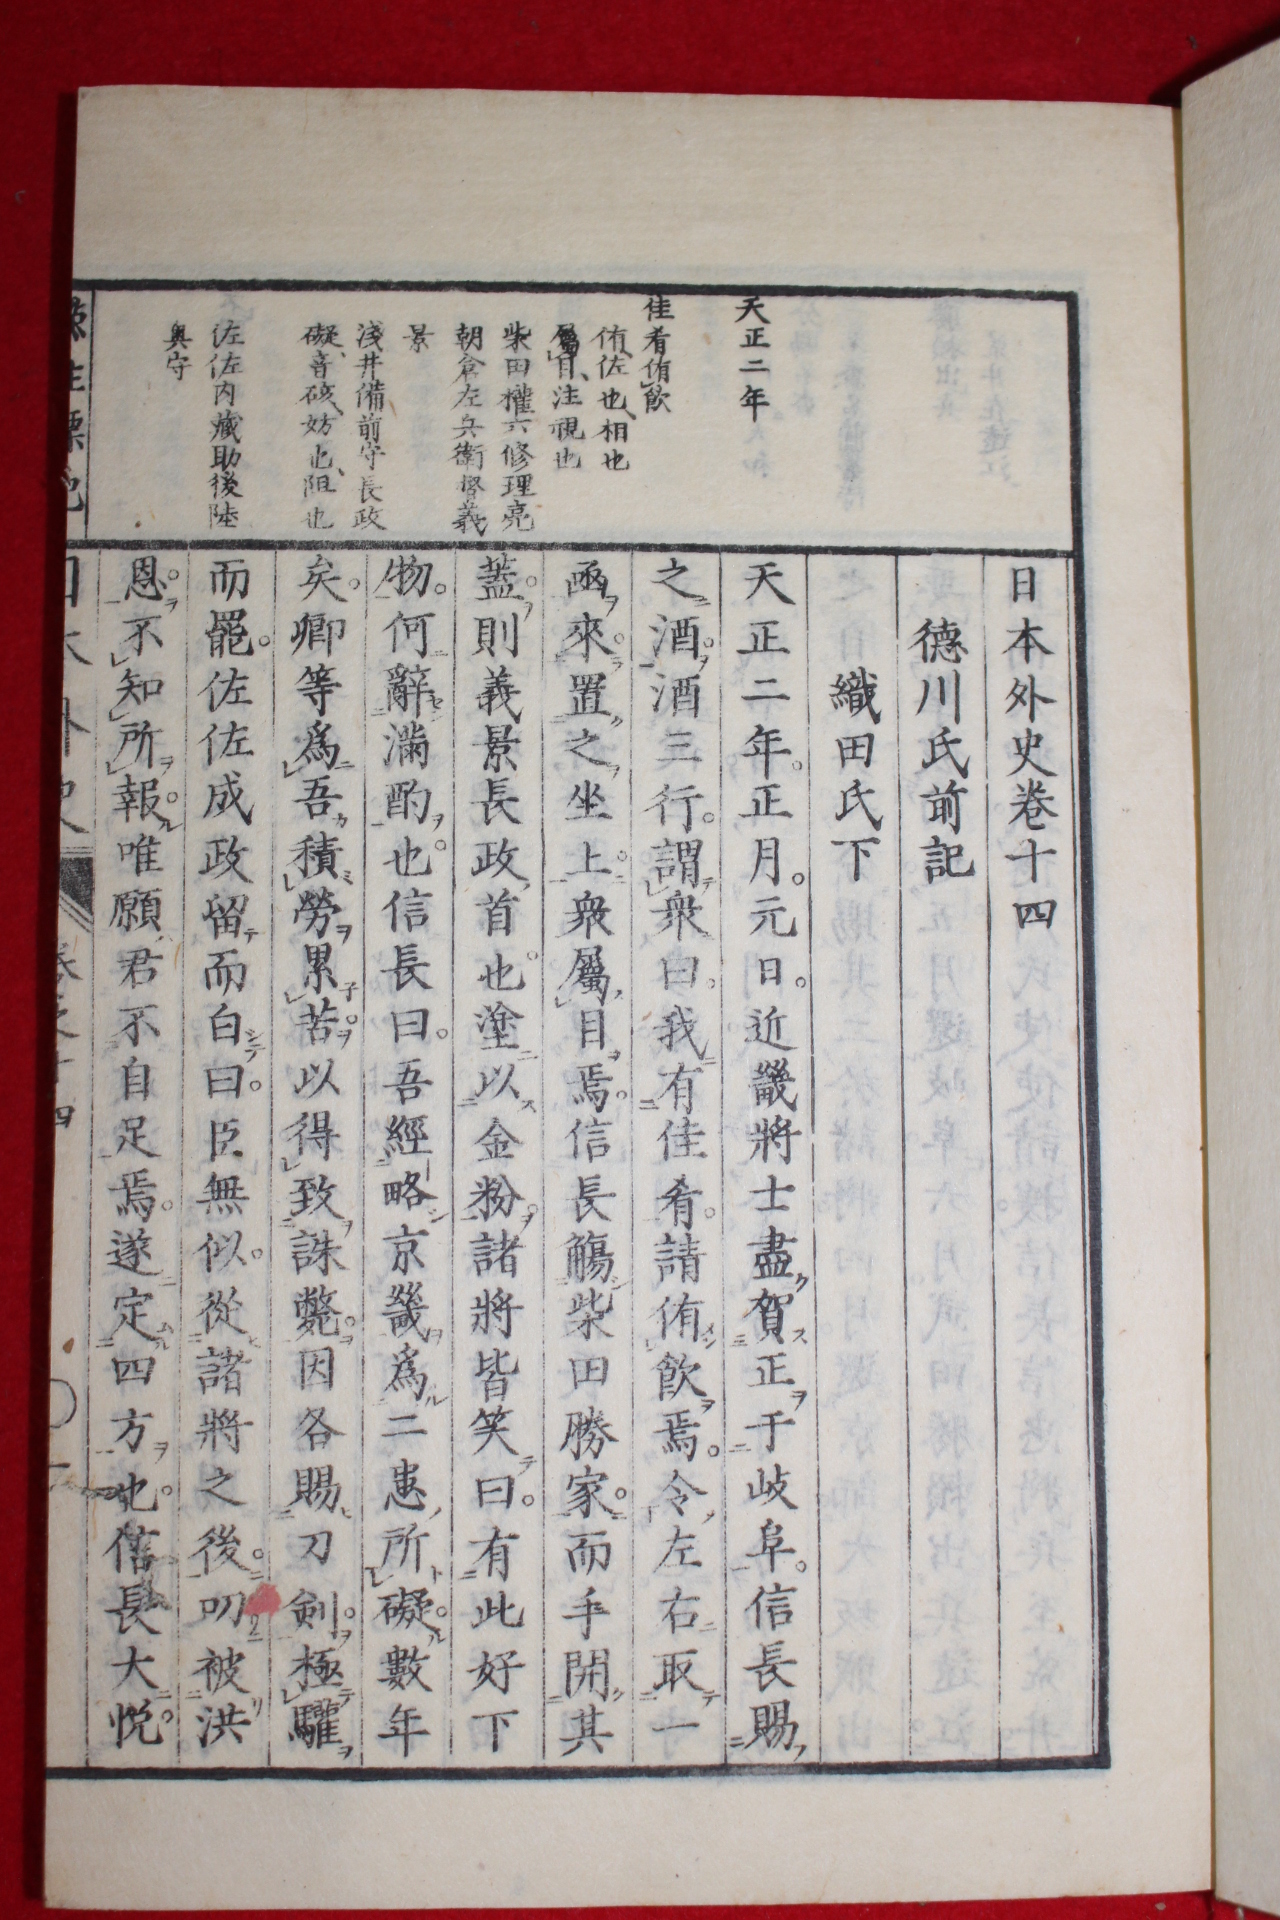 天正二年
佳肴侑飲
侑、佐也、相也
屬目、注視也
柴田權六修理亮
朝倉左兵衛督義
景
淺井備前守長政
礙、音硋、妨也、阻也
佐佐内藏助後陸
奥守
日本外史卷十四
德川氏前記
織田氏下
天正二年。正月。元日。近畿將士盡賀正于岐阜。信長賜
之酒。酒三行。謂衆曰。我有佳肴。請侑飲焉。令左右取一
凾來。置之坐上。衆屬目焉。信長觴柴田勝家。而手開其
蓋。則義景長政首也。塗以金粉。諸將皆笑曰。有此好下
物。何辭滿酌也。信長曰。吾經略京畿。爲二患所礙。數年
矣。卿等爲吾積勞累苦。以得致誅斃。因各賜刀劍。極驩
而罷。佐佐成政留而白曰。臣無似。從諸將之後。叨被洪
恩。不知所報。唯願君不自足焉。遂定四方也。信長大悅。